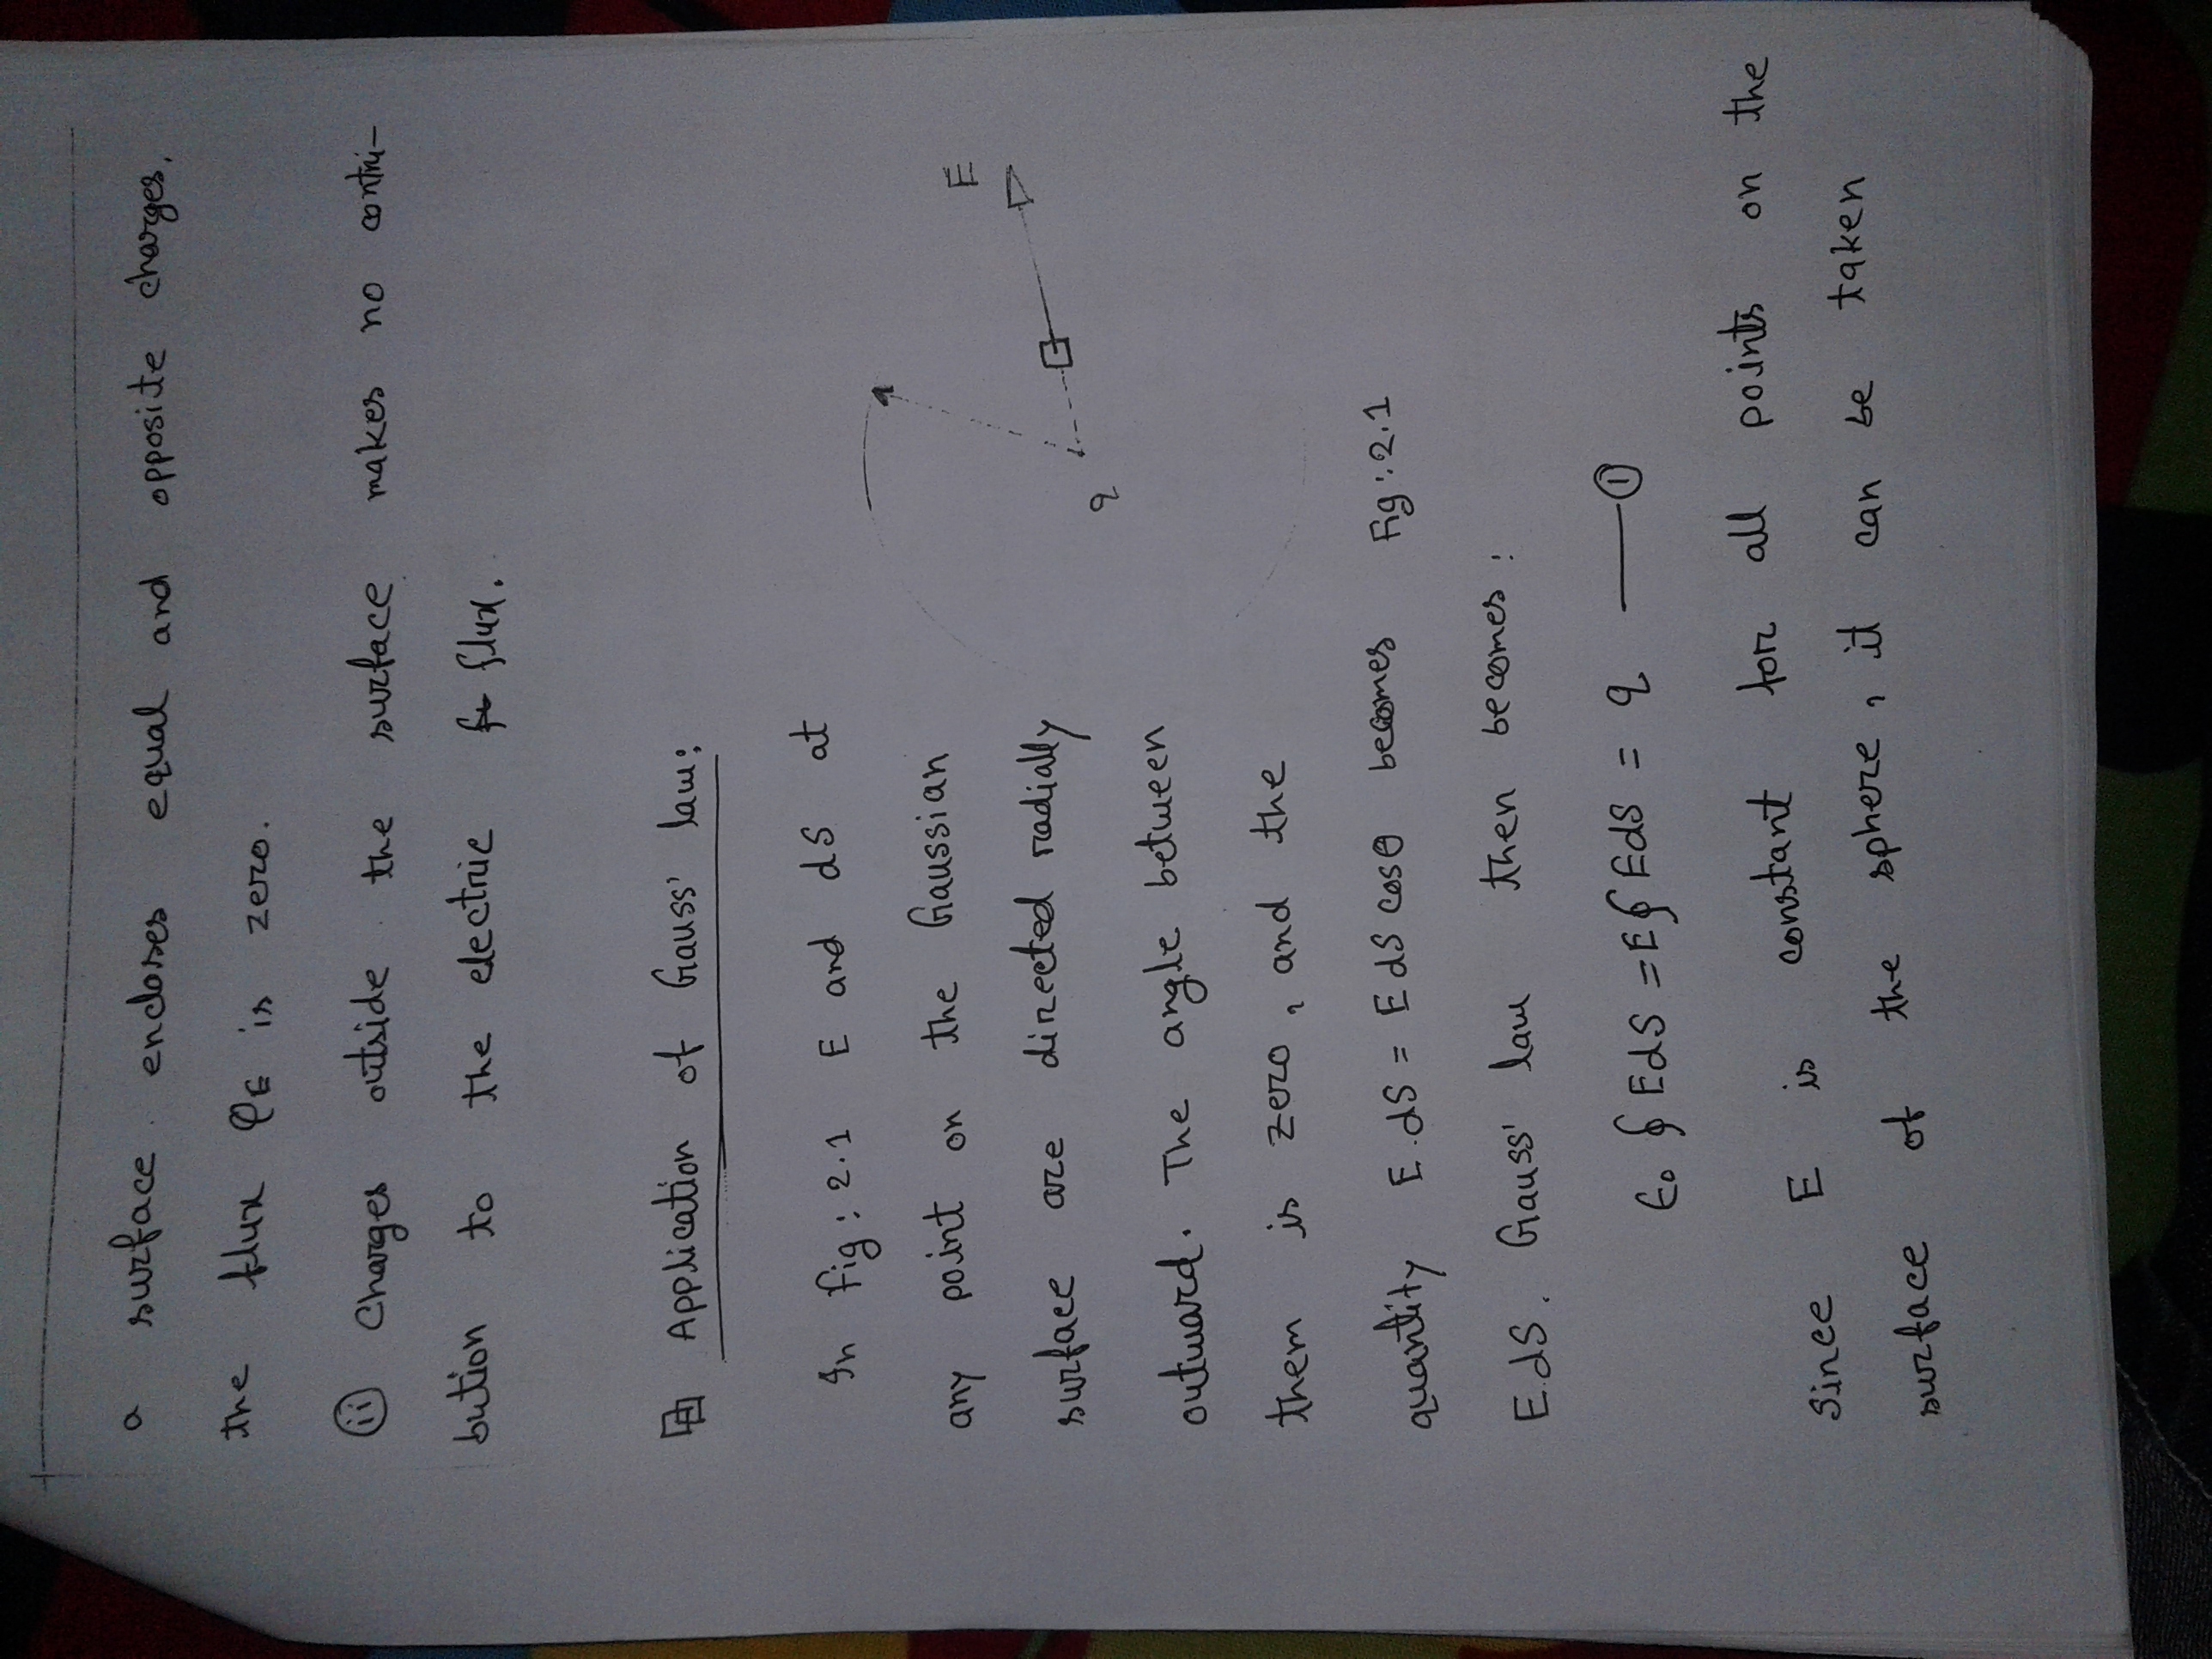 a surface encloses equal and opposite charges,
the flux φE is zero.
ii Charges outside the surface makes no contri-
bution to the electric flux.
Application of Gauss' law:
In fig: 2.1 E and dS at
any point on the Gaussian
surface are directed radially
outward. The angle between
them is zero, and the
quantity E.dS = E dS cosθ becomes
E.dS. Gauss' law then becomes:
E
q
Fig: 2.1
ϵ₀ ∮ EdS = E∮ EdS = q —— ①
Since E is constant for all points on the
surface of the sphere, it can be taken